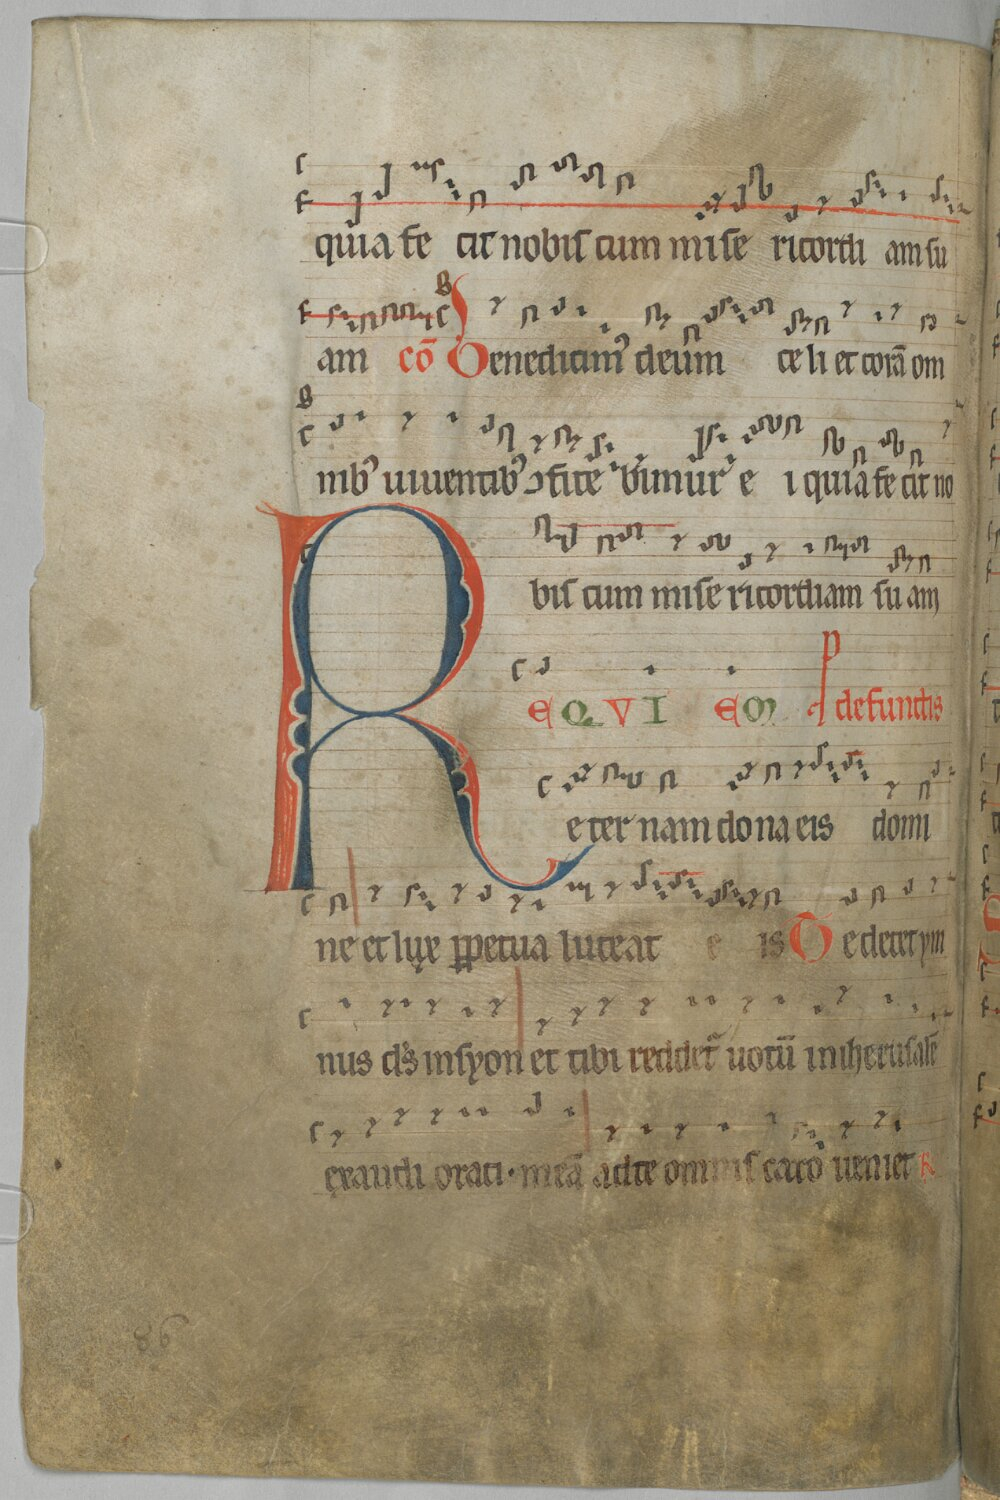 quia fe cit nobis cum mise ricordi am su
am cō Benedicim᷒ deum celi et corā om
nib᷒ uiuentib᷒ ɔfite bimur e i quia fe cit no
bis cum mise ricordiam su am
REQVI EM P defunctis
eter nam dona eis domi
ne et lux ꝑpetua luceat e is Te decet ym
nus d̄s in syon et tibi reddet᷒ uotū in iherusalē
exaudi orati· meā ad te omnis caro ueniet R
86